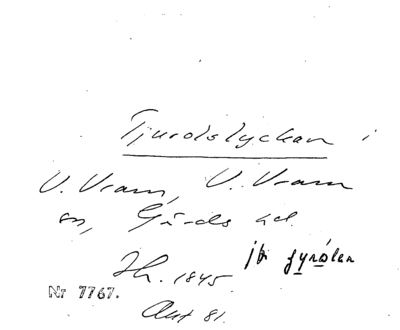 Tjurolslyckan i
V. Vram, V. Vram
sn, Gärds hd.
Jh. 1845. jfr
Nr 7767.
Akt 81.